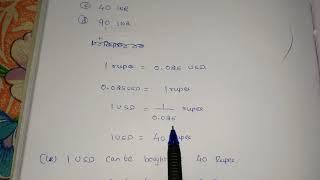 ⓒ 40 INR
ⓓ 90 INR
1 rupee = 0.025 USD
0.025USD = 1 rupee
1 USD = 1/0.025 rupee
1USD = 40 Rupee
1 USD can be bought 40 Rupee